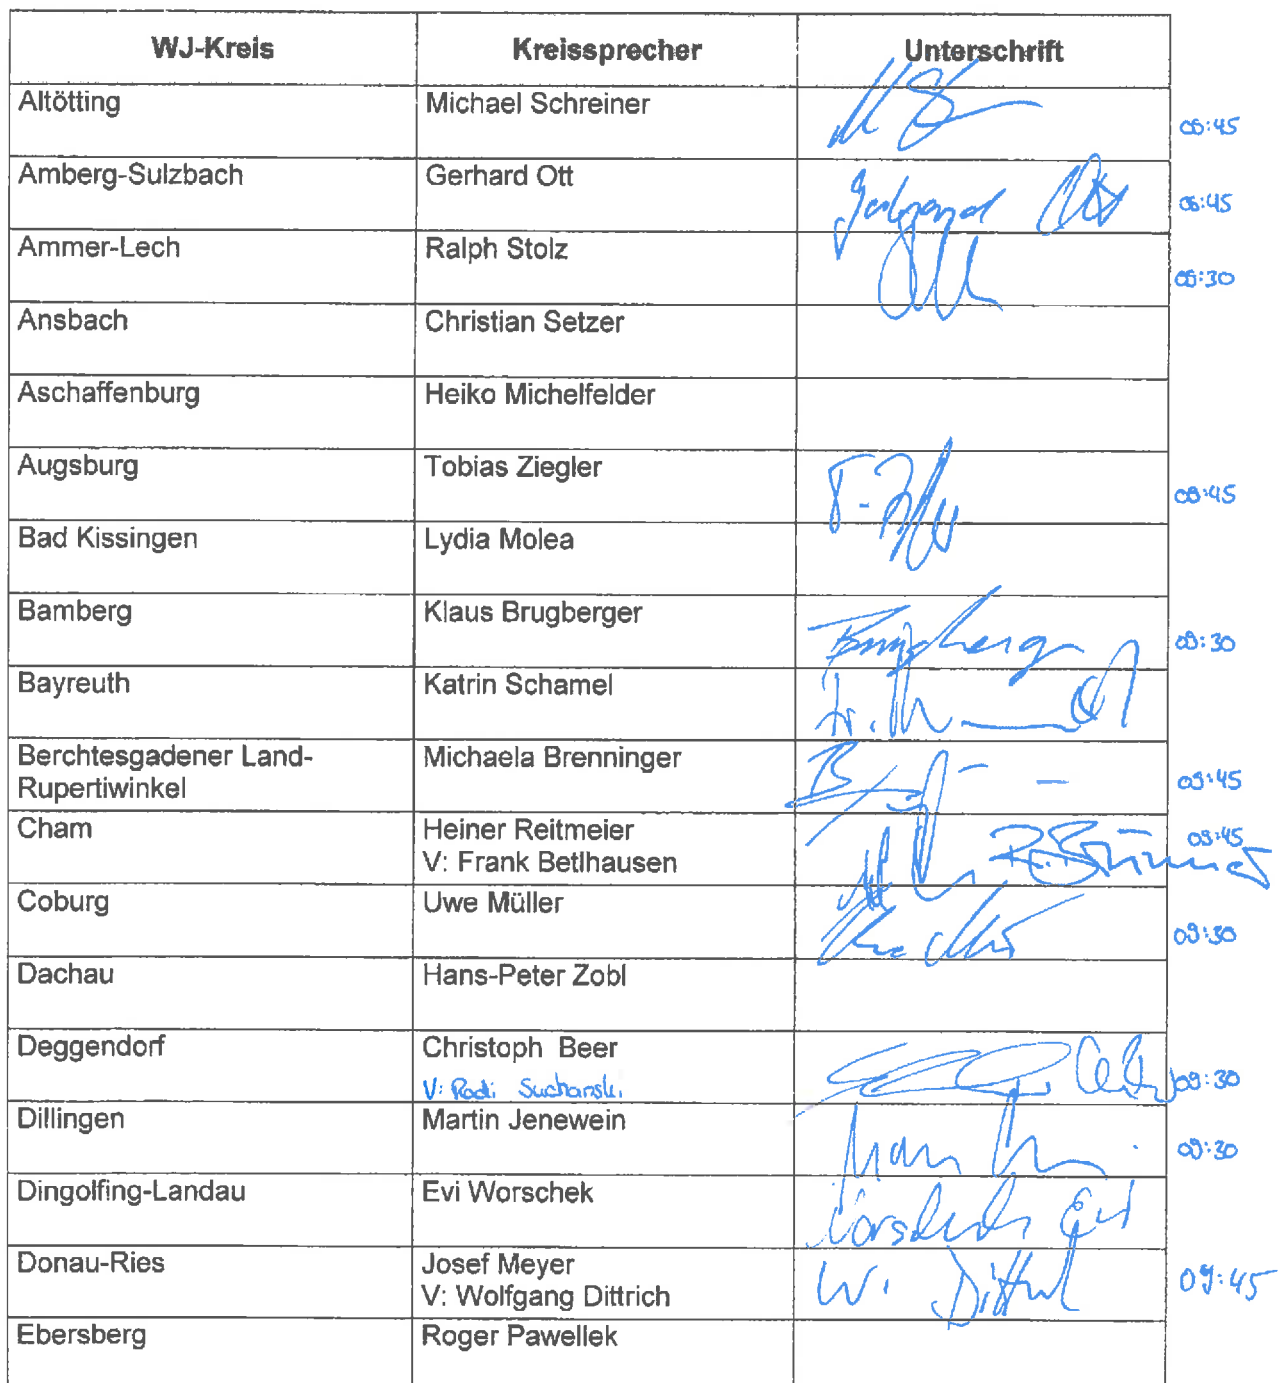 WJ-Kreis Kreissprecher Unterschrift
Altötting Michael Schreiner 09:45
Amberg-Sulzbach Gerhard Ott 09:45
Ammer-Lech Ralph Stolz 09:30
Ansbach Christian Setzer
Aschaffenburg Heiko Michelfelder
Augsburg Tobias Ziegler 09:45
Bad Kissingen Lydia Molea
Bamberg Klaus Brugberger 09:30
Bayreuth Katrin Schamel
Berchtesgadener Land- Michaela Brenninger 09:45
Rupertiwinkel
Cham Heiner Reitmeier 09:45
V: Frank Betlhausen
Coburg Uwe Müller 09:30
Dachau Hans-Peter Zobl
Deggendorf Christoph Beer 09:30
V: Radi Sucharski
Dillingen Martin Jenewein 09:30
Dingolfing-Landau Evi Worschek Worschek Evi
Donau-Ries Josef Meyer W. Dittrich 09:45
V: Wolfgang Dittrich
Ebersberg Roger Pawellek